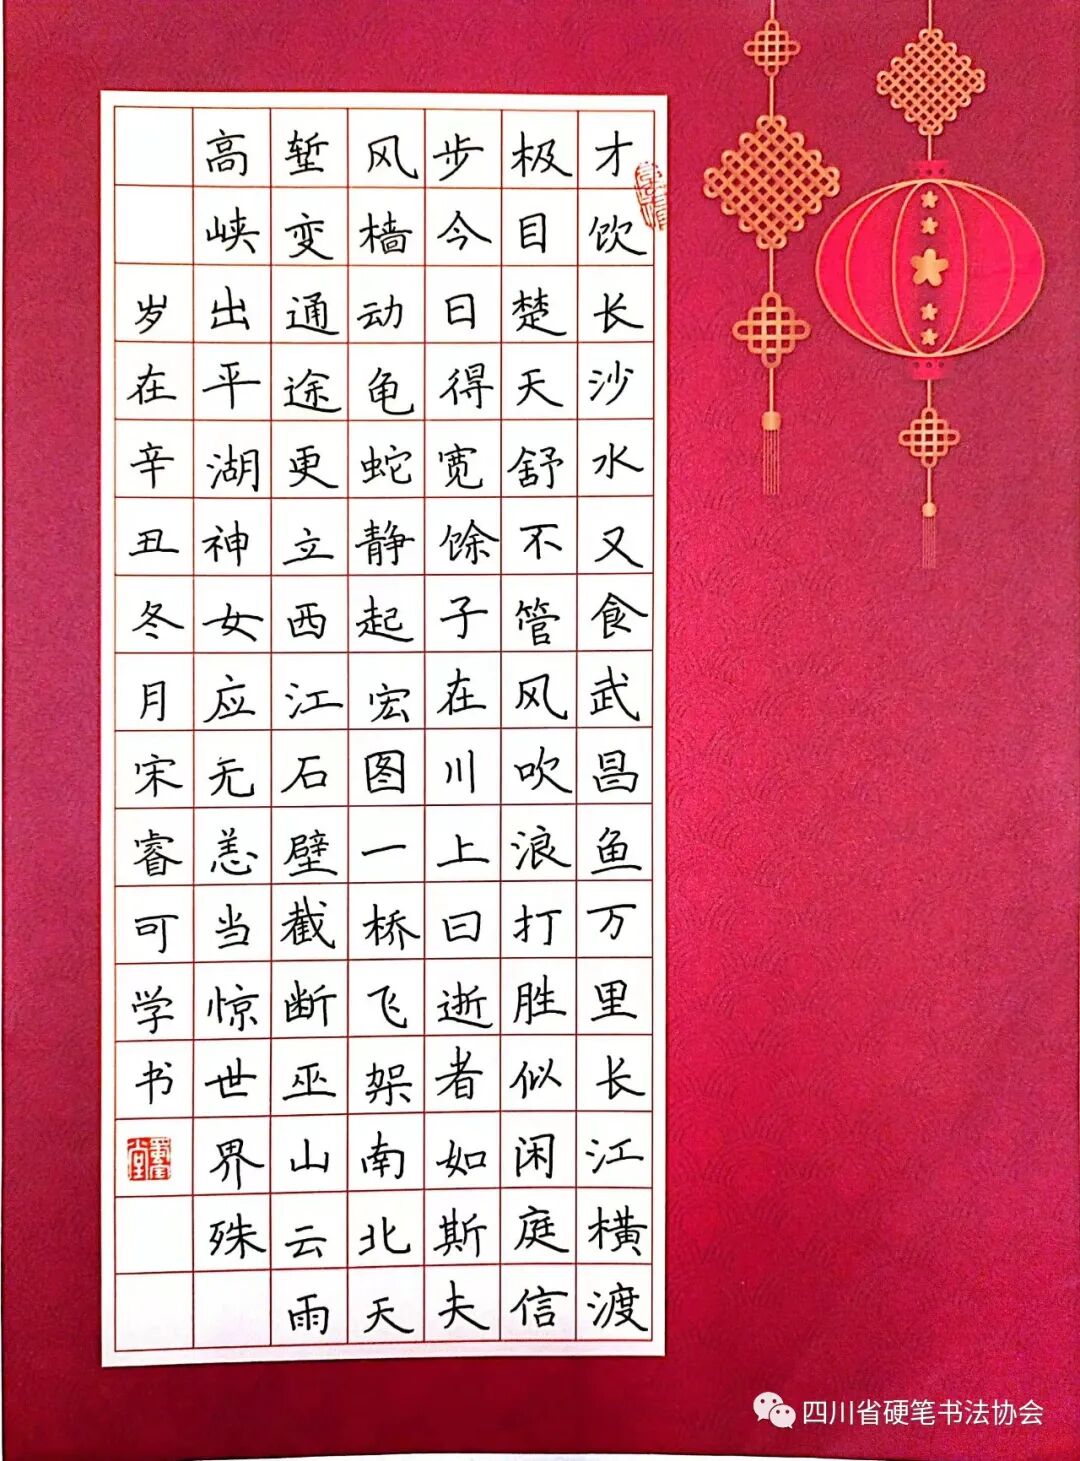 才饮长沙水又食武昌鱼万里长江横渡
极目楚天舒不管风吹浪打胜似闲庭信
步今日得宽馀子在川上曰逝者如斯夫
风樯动龟蛇静起宏图一桥飞架南北天
堑变通途更立西江石壁截断巫山云雨
高峡出平湖神女应无恙当惊世界殊
岁在辛丑冬月宋睿可学书
四川省硬笔书法协会